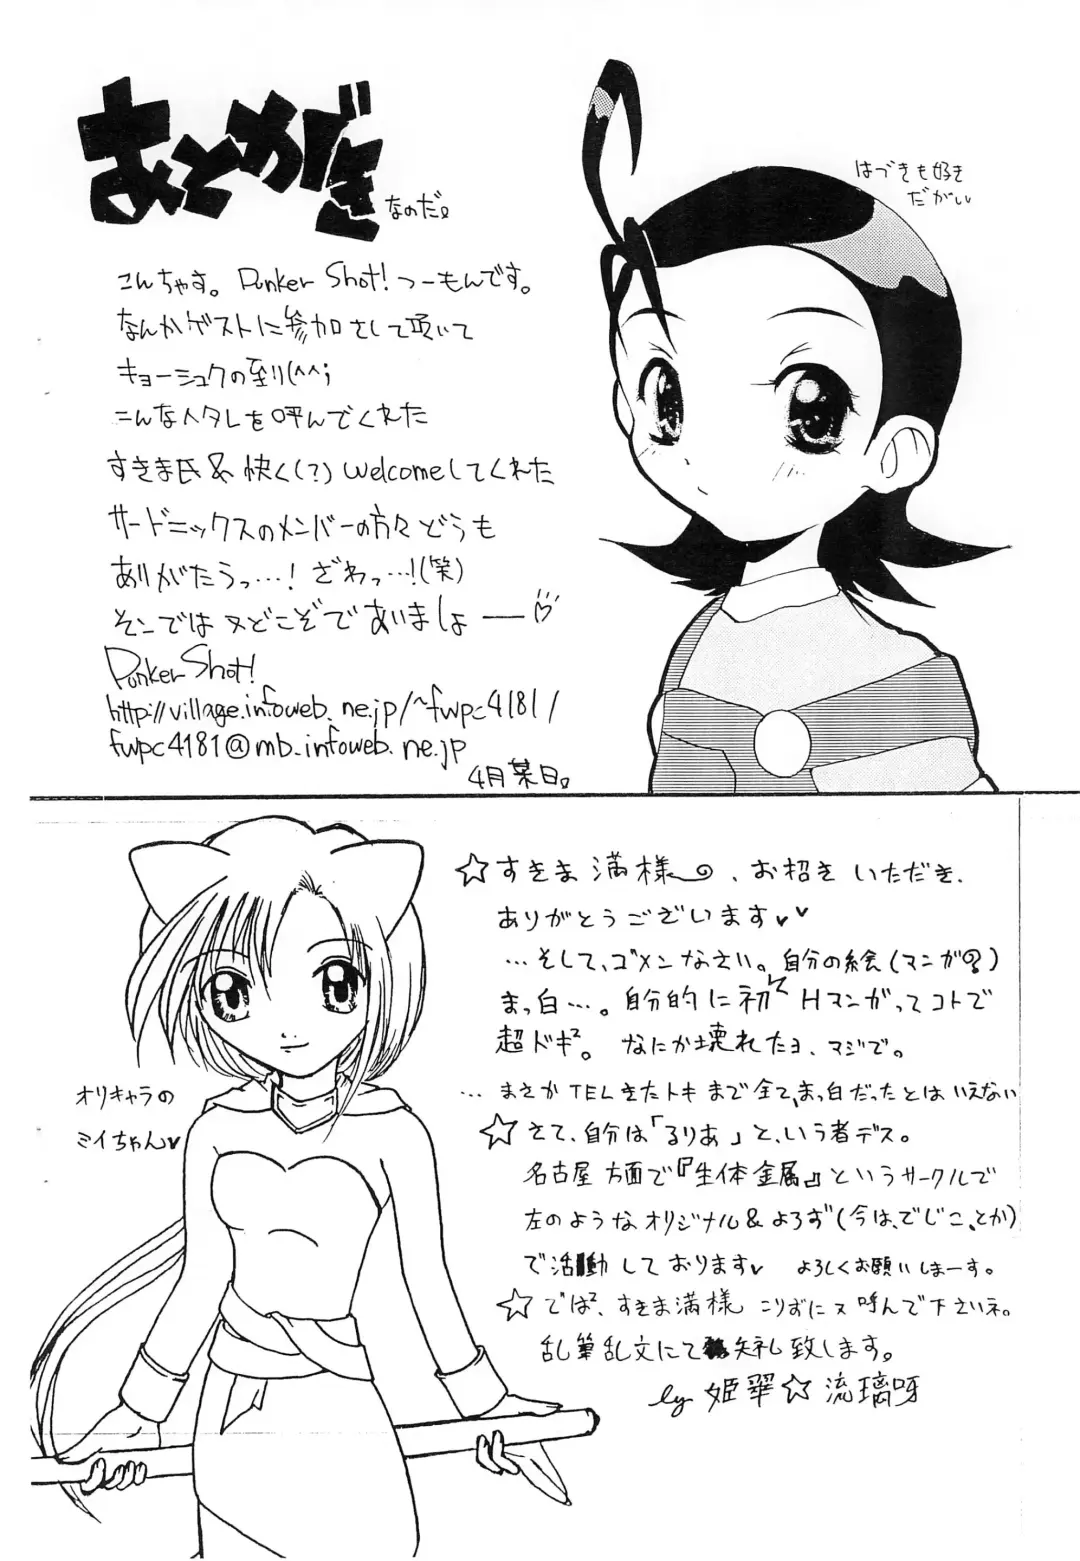 あとがき
なのだ。
はづきも好き
だがい
こんちゃす。Punker Shot!っつーもんです。
なんかゲストに参加さして頂いて
キョーシュクの至り(^^;
こんなヘタレを呼んでくれた
すきま氏&快く(?)welcomeしてくれた
サードニックスのメンバーの方々どうも
ありがたうっ…!ざわっ…!(笑)
そこではヌどこぞであいましょー♡
Punker Shot!
http://village.infoweb.ne.jp/~fwpc4181/
fwpc4181@mb.infoweb.ne.jp
4月某日。
☆すきま満様、お招きいただき、
ありがとうございます♥♥
…そして、ゴメンなさい。自分の絵(マンガ?)
まっ白…。自分的に初Hマンガってコトで
超ドキ²。なにか壊れたヨ、マジで。
…まさかTELきたトキまで全てまっ白だったとはいえない
☆さて、自分は「るりあ」と、いう者デス。
名古屋方面で『生体金属』というサークルで
左のようなオリジナル&よろず(今は、でじこ、とか)
で活動しております♥よろしくお願いしまーす。
☆では²、すきま満様こりずにヌ呼んで下さいネ。
乱筆乱文にて失礼致します。
by 姫翠☆流璃呀
オリキャラの
ミイちゃん♥